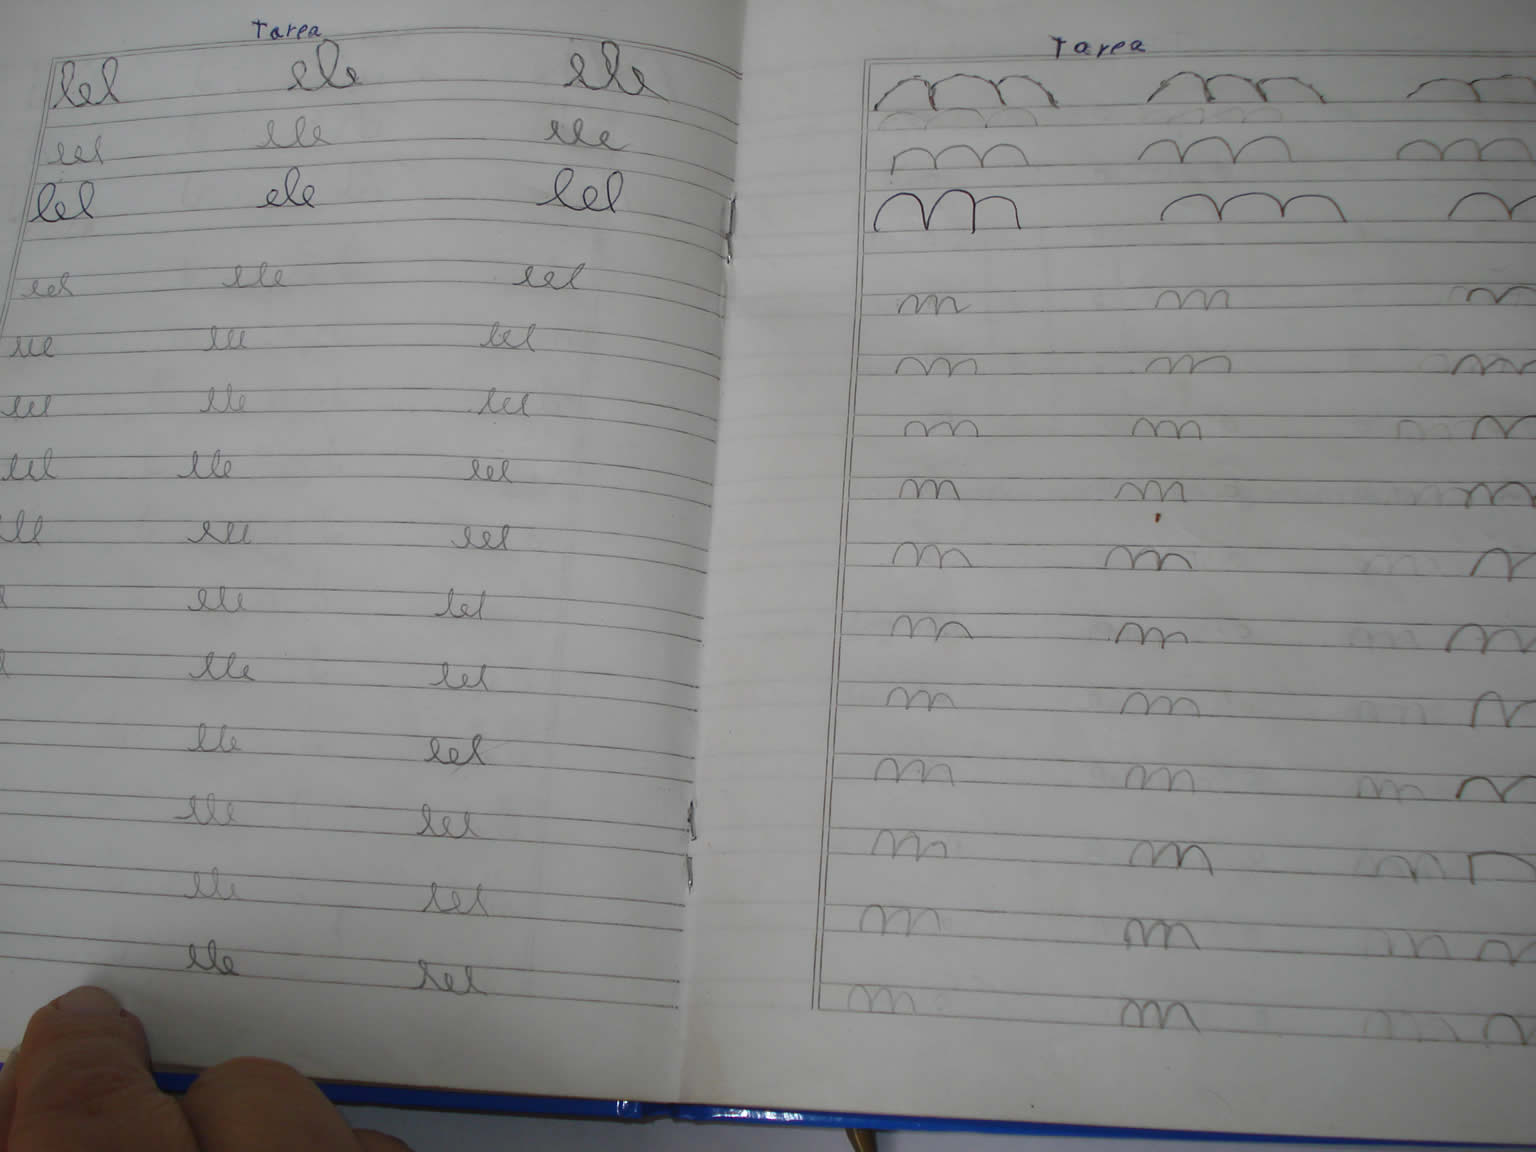 Tarea
lel ele ele
lel ele ele
lel ele lel
lel ele lel
ele lel lel
lel ele lel
lel ele lel
lel lel
ele lel
ele lel
ele lel
ele lel
ele lel
ele lel
Tarea
m m m
m m m
m m m
m m m
m m m
m m m
m m m
m m m
m m m
m m m
m m m
m m m
m m m
m m m